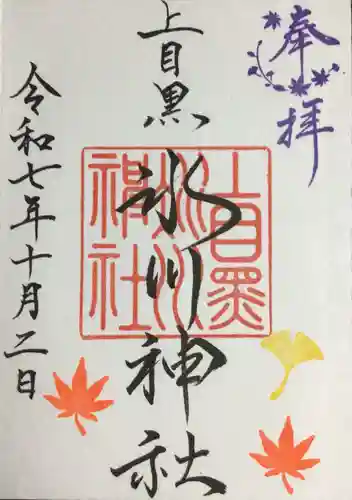 奉拝
上目黒
氷川神社
令和七年十月二日
上目黑氷川神社